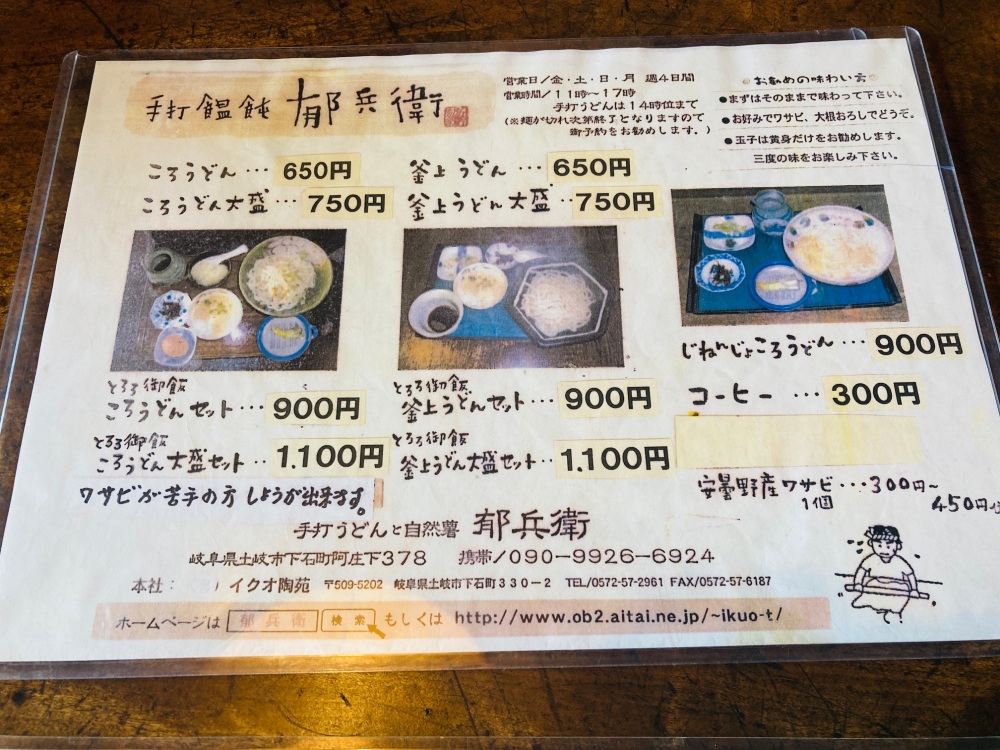 手打 饂飩 郁兵衛
営業日/金・土・日・月 週4日間
営業時間/11時〜17時
手打うどんは14時位まで
(※麺が切れ次第終了となりますので
御予約をお勧めします。)
お勧めの味わい方
●まずはそのままで味わって下さい。
●お好みでワサビ、大根おろしでどうぞ。
●玉子は黄身だけをお勧めします。
三度の味をお楽しみ下さい。
ころうどん … 650円
ころうどん大盛 ‥ 750円
釜上うどん … 650円
釜上うどん大盛 ‥ 750円
とろろ御飯
ころうどんセット … 900円
とろろ御飯
ころうどん大盛セット ‥ 1.100円
ワサビが苦手の方 しょうが出来ます。
とろろ御飯
釜上うどんセット … 900円
とろろ御飯
釜上うどん大盛セット ‥ 1.100円
じねんじょころうどん … 900円
コーヒー … 300円
安曇野産ワサビ … 300円〜
1個 450円位
手打うどんと自然薯 郁兵衛
岐阜県土岐市下石町阿庄下378 携帯/090-9926-6924
本社: イクオ陶苑 〒509-5202 岐阜県土岐市下石町330-2 TEL/0572-57-2961 FAX/0572-57-6187
ホームページは 郁兵衛 検索 もしくは http://www.ob2.aitai.ne.jp/~ikuo-t/